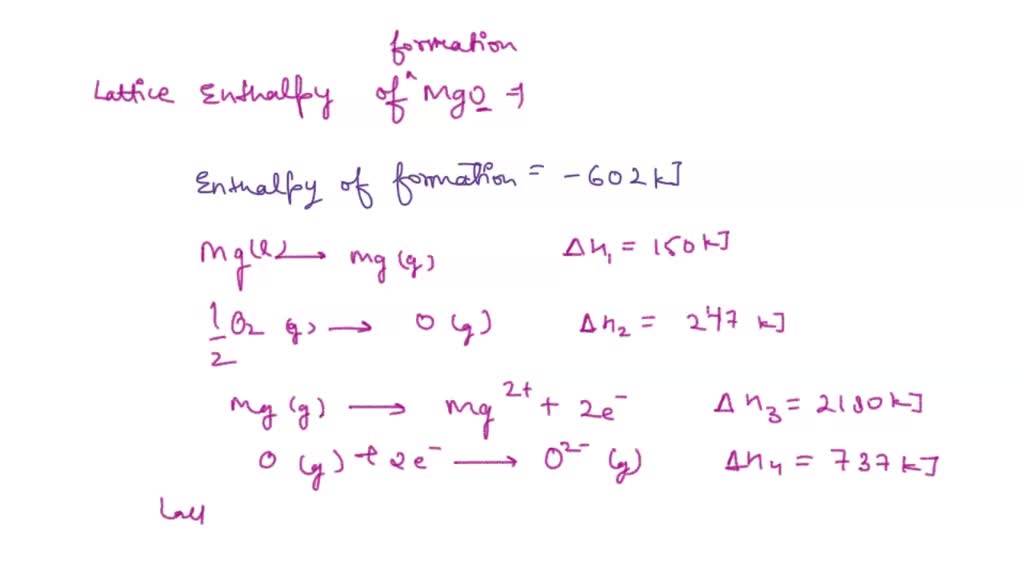 formation
Lattice Enthalpy of ^ MgO ⇒
Enthalpy of formation = -602 kJ
Mg(s) → Mg (g) ΔH₁ = 150 kJ
1/2 O₂ (g) → O (g) ΔH₂ = 247 kJ
Mg (g) → Mg²⁺ + 2e⁻ ΔH₃ = 2180 kJ
O (g) + 2e⁻ → O²⁻ (g) ΔH₄ = 737 kJ